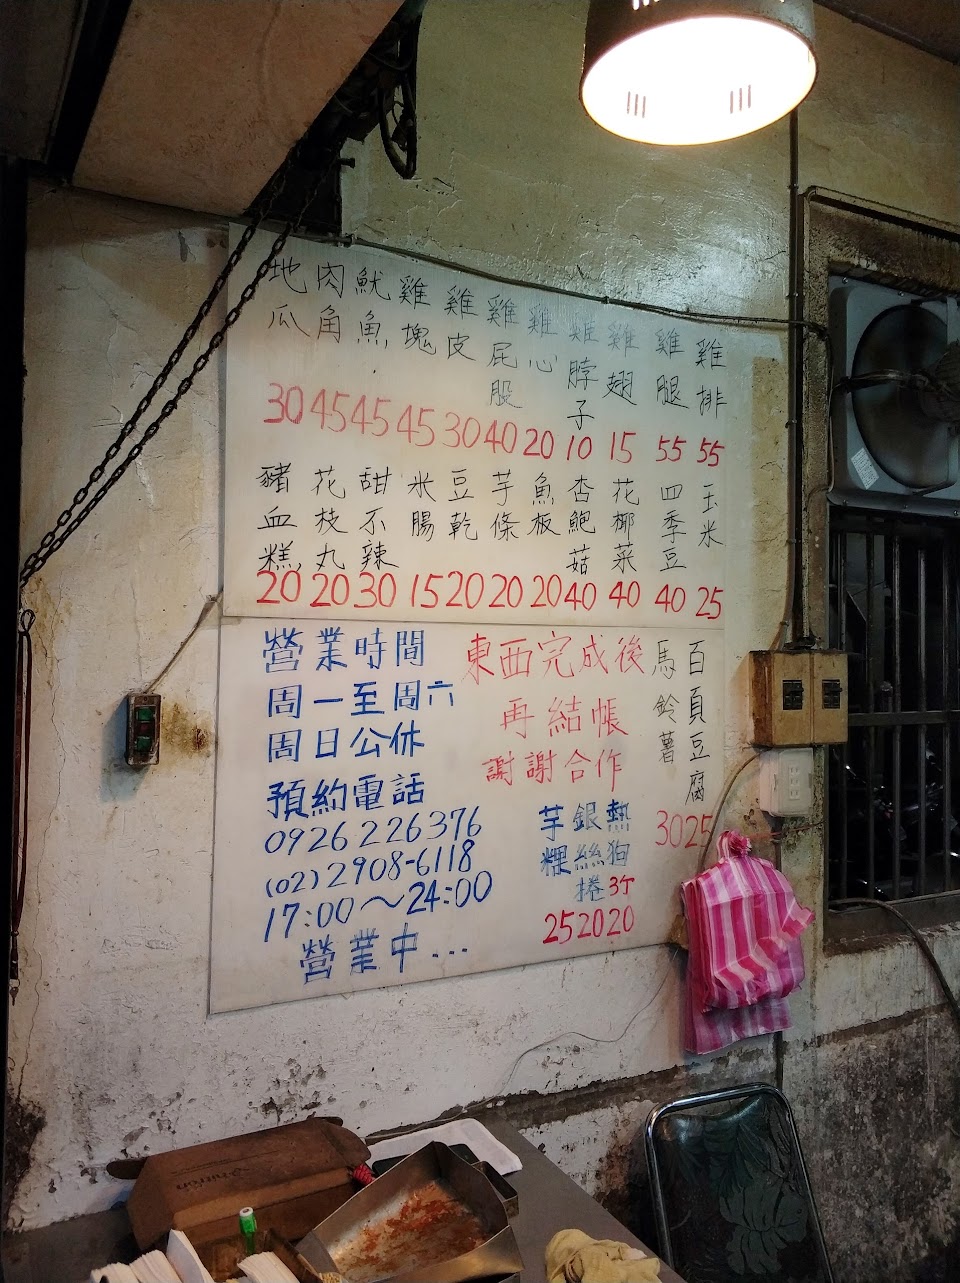 雞排 55
雞腿 55
雞翅 15
雞脖子 10
雞心 20
雞屁股 40
雞皮 30
雞塊 45
魷魚 45
肉角 45
地瓜 30
玉米 25
四季豆 40
花椰菜 40
杏鮑菇 40
魚板 20
芋條 20
豆乾 20
米腸 15
甜不辣 30
花枝丸 20
豬血糕 20
百頁豆腐 25
馬鈴薯 30
東西完成後
再結帳
謝謝合作
熱狗 20
銀絲捲 20
芋粿 25
營業時間
周一至周六
周日公休
預約電話
0926226376
(02)2908-6118
17:00～24:00
營業中...